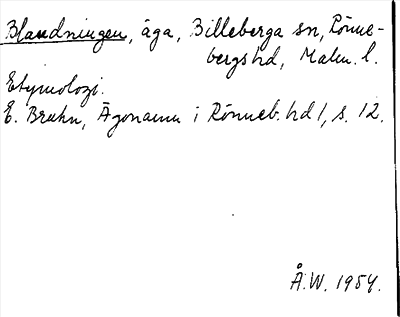 Blandningen, äga, Billeberga sn, Rönne-
bergs hd, Malm. l.
Etymologi.
E. Bruhn, Ägonamn i Rönneb. hd 1, s. 12.
Å.W. 1954.